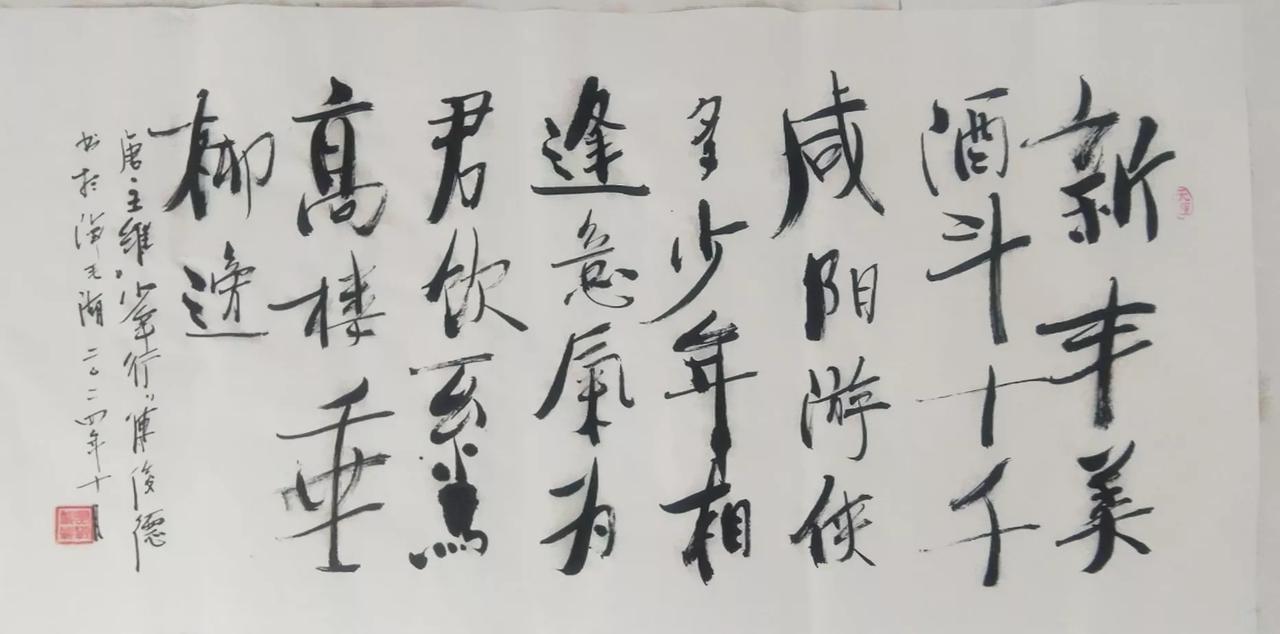 新丰美
酒斗十千
咸阳游侠
多少年相
逢意氣为
君饮系馬
髙楼垂
柳邊
唐王维少年行陳俊德
书於滆毛湖二〇二四年十月